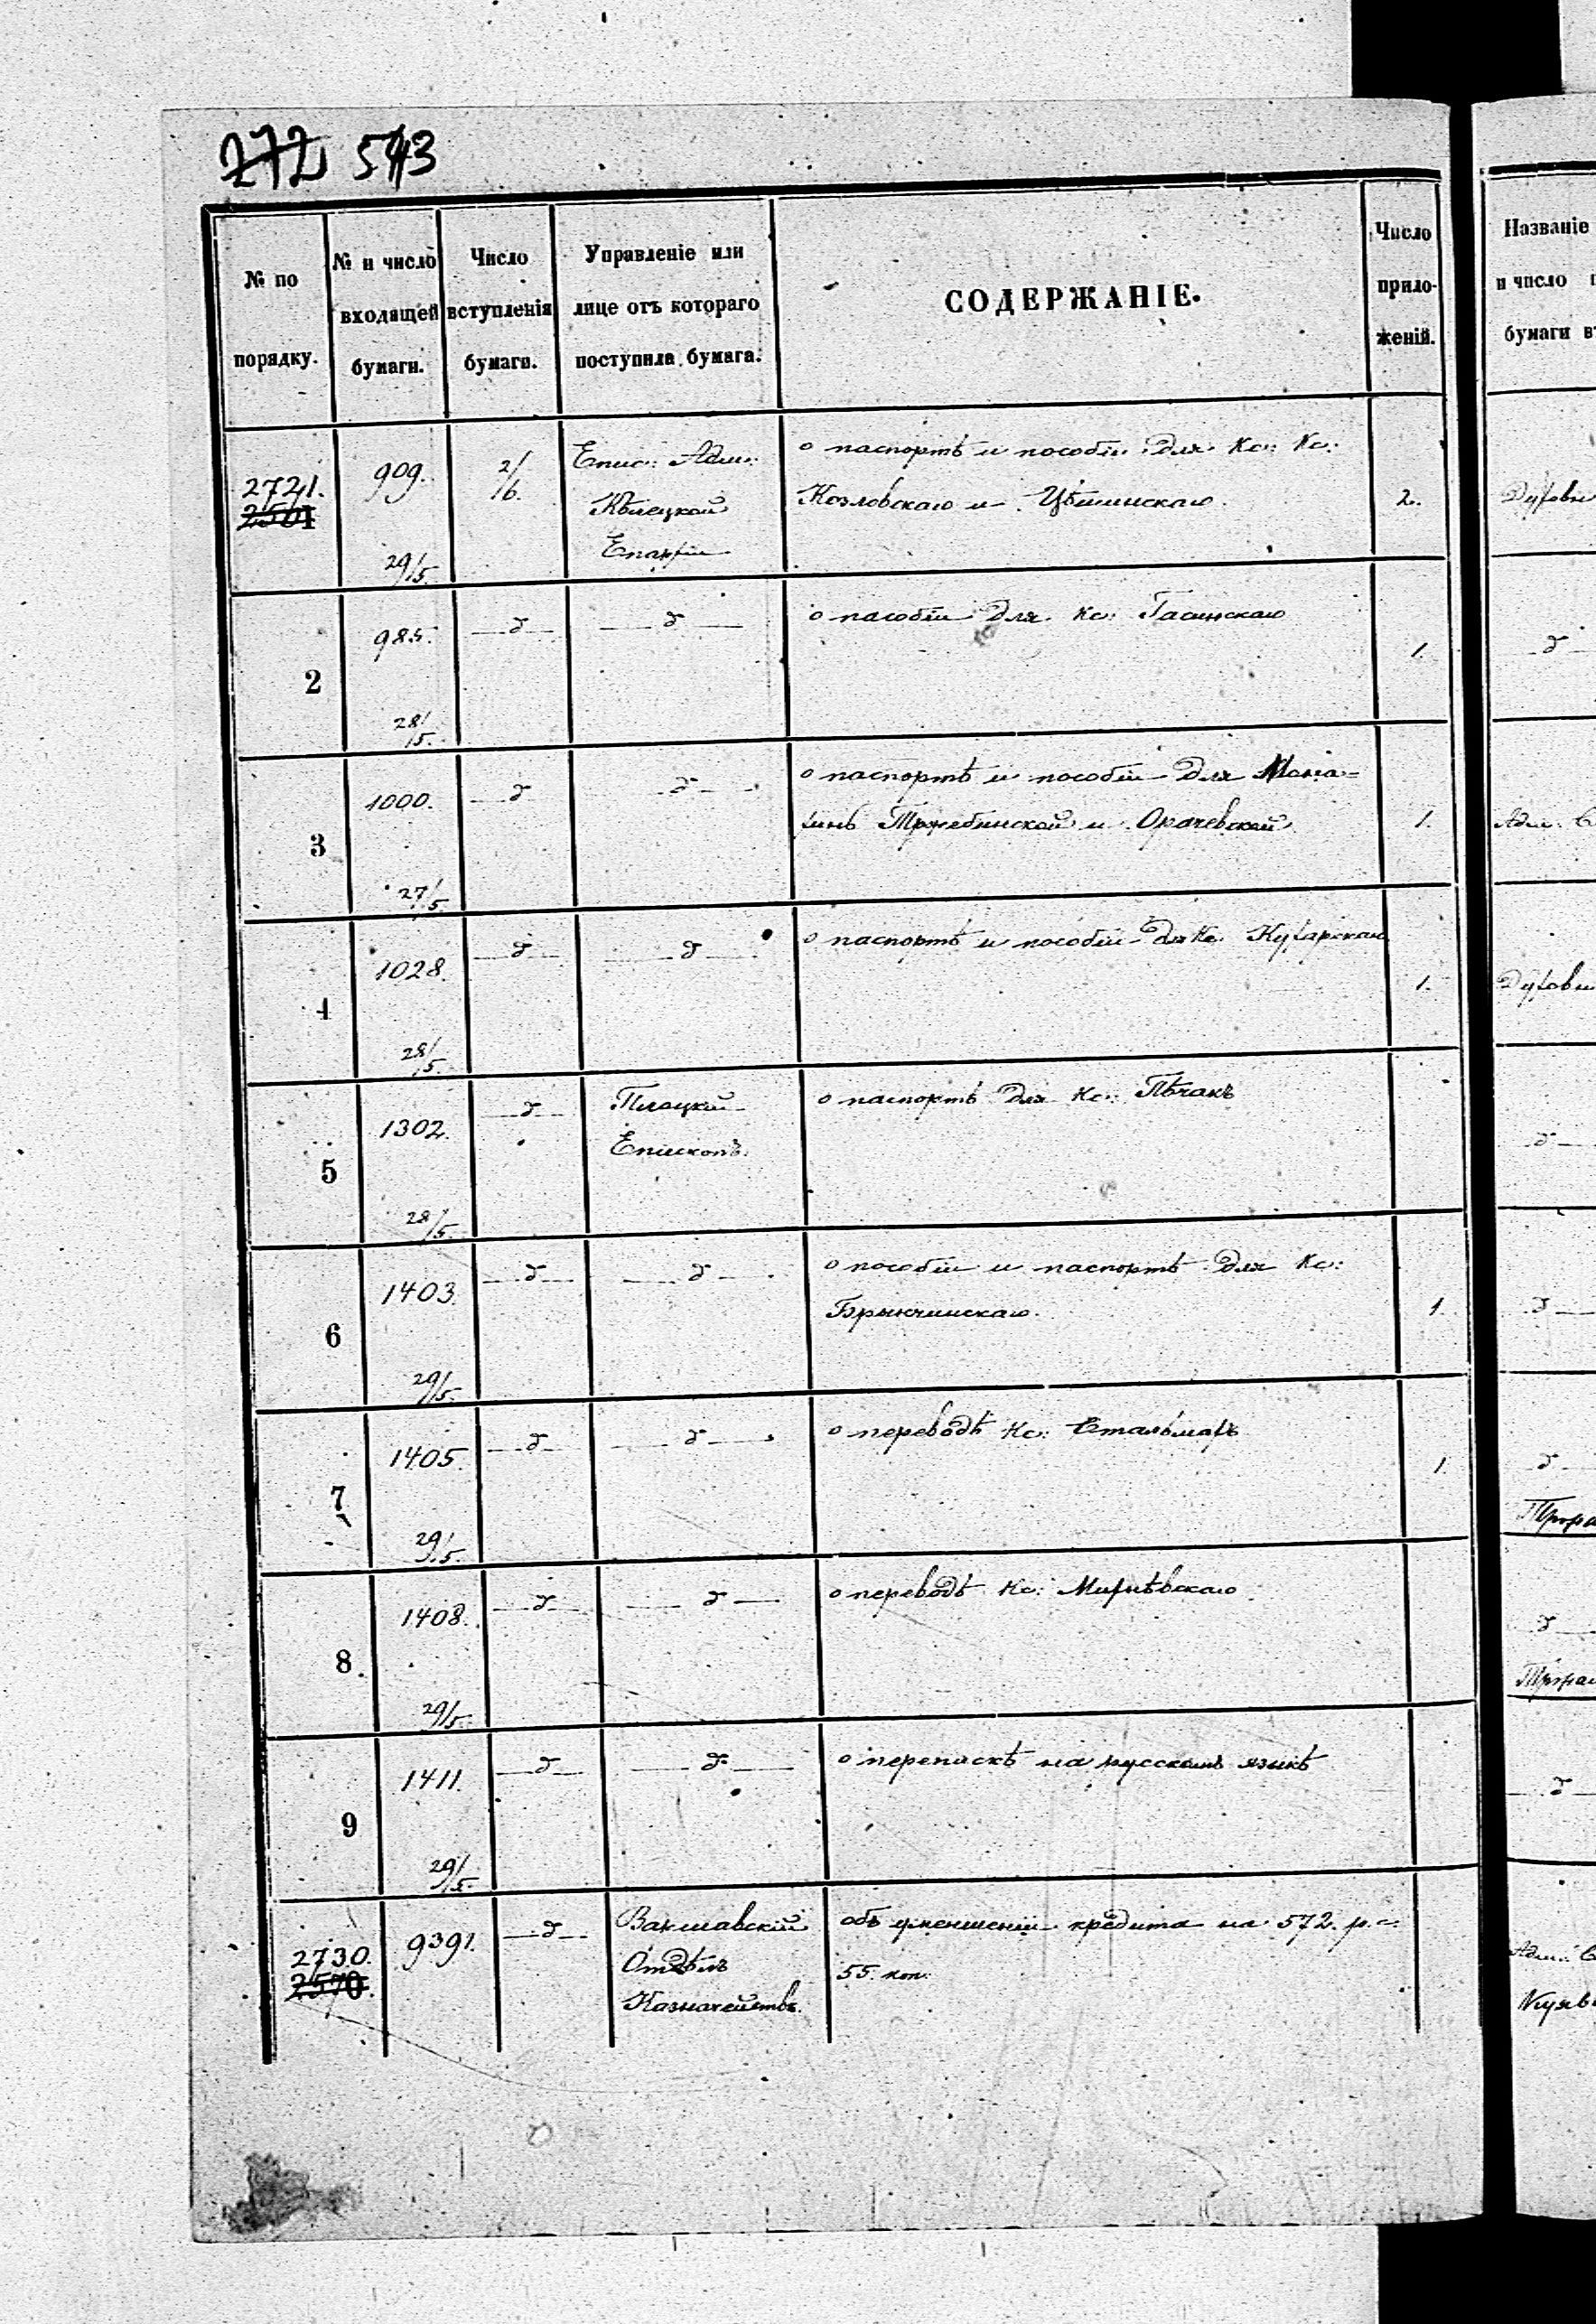 272 543
№ по порядку.
№ и число входящей бумаги.
Число вступленія бумаги.
Управленіе или лице отъ котораго поступила бумага.
СОДЕРЖАНІЕ.
Число прило-женій.
Названіе
и число
бумаги
2721.
2561
909.
29/5
2/6.
Епис: Адми:
Кѣлецкой
Епархіи
о паспортѣ и пособіи для Кс: Кс:
Козловскаго и Цѣшинскаго.
2.
2
985.
28/5.
д
д
о пособіи для Кс: Гасинскаго
1.
д
3
1000.
27/5.
д
д
о паспортѣ и пособіи для Мона=
хинь Тржебинской и Орачевской
1.
Адм.
4
1028.
28/5.
д
д
о паспортѣ и пособіи для Кс. Кухарскаго
1.
5
1302.
28/5.
д
Плоцкій
Епископъ.
о паспортѣ для Кс: Пѣчакъ
д
6
1403.
29/5.
д
д
о пособіи и паспортѣ для Кс:
Брынчинскаго.
1.
д
7
1405.
29/5.
д
д
о переводѣ Кс: Стальмахъ
1.
д
8
1408.
29/5.
д
д
о переводѣ Кс: Михнѣвскаго
д
9
1411.
29/5.
д
д
о перепискѣ на русскомъ языкѣ
д
2730.
2570.
9391.
д
Варшавскій
Отдѣлъ
Казначейства.
объ уменшеніи кредита на 572. р.=
55. коп:
Адм: